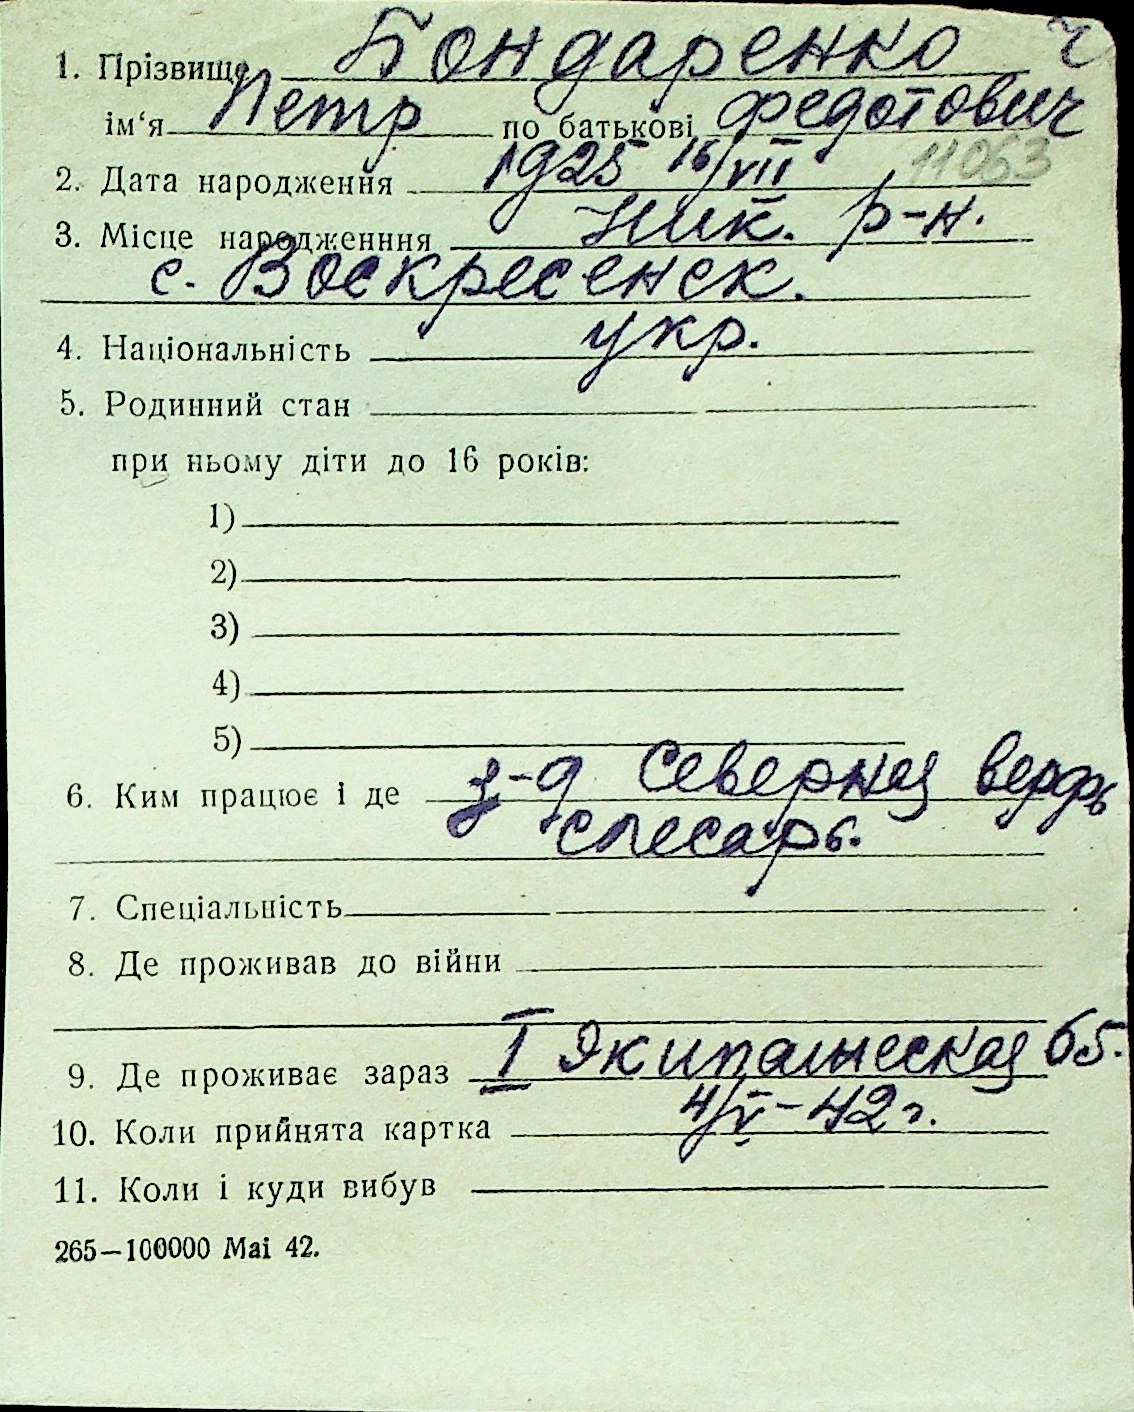 1. Прізвище Бондаренко ч
ім‘я Петр по батькові Федотович
11063
2. Дата народження 1925 16/VII
3. Місце народженння Ник. р-н.
с. Воскресенск.
4. Національність укр.
5. Родинний стан
при ньому діти до 16 років:
1)
2)
3)
4)
5)
6. Ким працює і де з-д Северная верфь
слесарь.
7. Спеціальність
8. Де проживав до війни
9. Де проживає зараз I Экипажеская 65.
10. Коли прийнята картка 4/V-42 г.
11. Коли і куди вибув
265—100000 Маі 42.